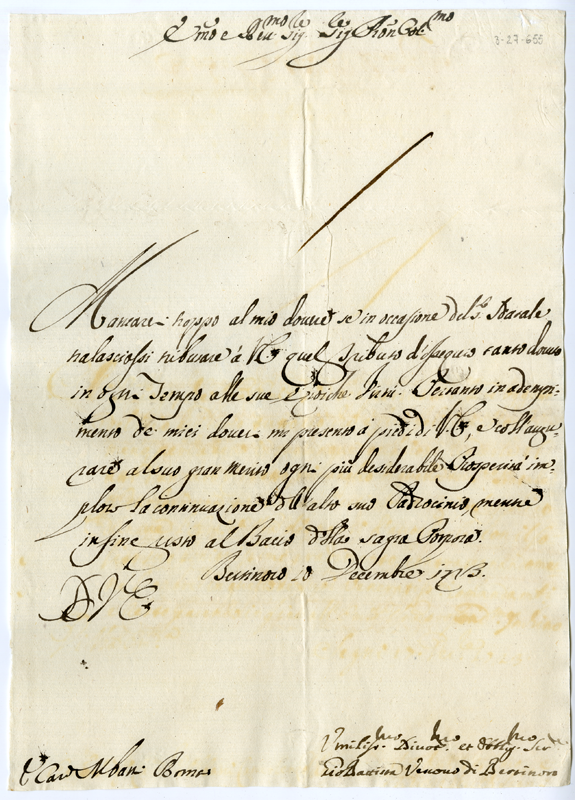 Em̃o e Rev.mo Sig.re Sig.re Pron Col.mo
3-27-655
Mancarei troppo al mio dovere se in occasione del S. Natale
tralasciassi tributare à V.E. quel Tributo d'ossequio tanto dovuto
in ogni Tempo alle sue Eroiche Virtù. Pertanto in adempi-
mento de miei doveri mi presento à piedi di V.E., e coll'augu-
rare al suo gran merito ogni più desiderabile Prosperità im-
ploro la continuazione dell'alto suo Padrocinio, mentre
in fine resto al Bacio della sagra Porpora.
Bertinoro 10 Decembre 1713.
D V E
Umiliss.mo Divot.mo et Obblig.mo Ser.re
E. Card. Albani Roma
Gio Battista Vescovo di Bertinoro